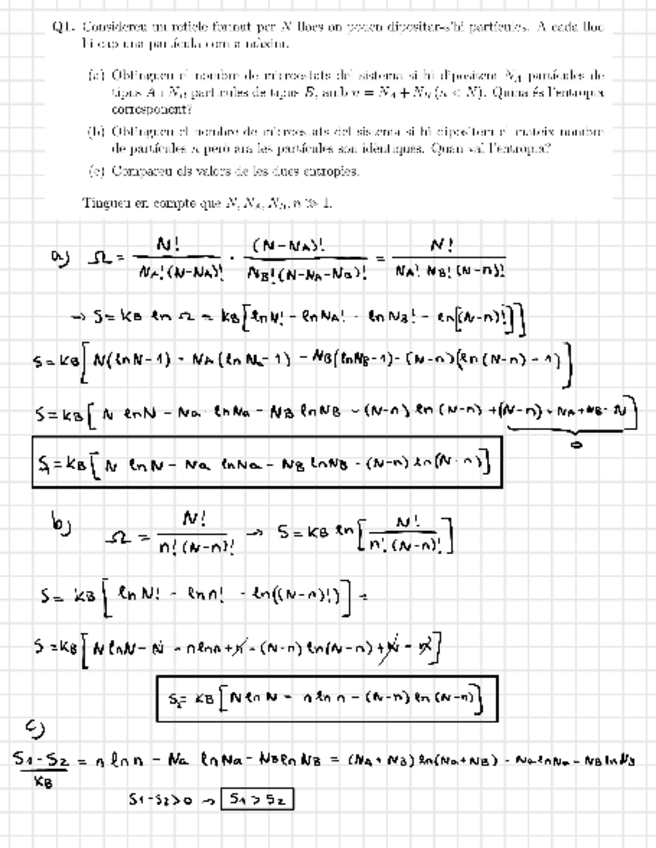 Q1. Considereu un reticle format per N llocs on poden dipositar-s'hi partícules. A cada lloc
hi cap una partícula com a màxim.
(a) Obtingueu el nombre de microestats del sistema si hi dipositem N_A partícules de
tipus A i N_B partícules de tipus B, amb n = N_A + N_B (n < N). Quina és l'entropia
corresponent?
(b) Obtingueu el nombre de microestats del sistema si hi dipositem el mateix nombre
de partícules n però ara les partícules són idèntiques. Quan val l'entropia?
(c) Compareu els valors de les dues entropies.
Tingueu en compte que N, N_A, N_B, n ≫ 1.
a) Ω = N! / NA! (N-NA)! · (N-NA)! / NB! (N-NA-NB)! = N! / NA! NB! (N-n)!
→ S = KB ln Ω = KB [ln N! - ln NA! - ln NB! - ln[(N-n)!]]
S = KB [N(ln N - 1) - NA (ln Na - 1) - NB (ln NB - 1) - (N-n)(ln (N-n) - 1)]
S = KB [N ln N - Na ln Na - NB ln NB - (N-n) ln (N-n) + (N-n) + NA + NB - N]
0
S1 = KB [N ln N - Na ln Na - NB ln NB - (N-n) ln (N-n)]
b) Ω = N! / n! (N-n)! → S = KB ln [N! / n! (N-n)!]
S = KB [ln N! - ln n! - ln((N-n)!)] =
S = KB [N ln N - N - n ln n + n - (N-n) ln (N-n) + N - n]
S2 = KB [N ln N - n ln n - (N-n) ln (N-n)]
c)
S1 - S2 / KB = n ln n - Na ln Na - NB ln NB = (NA + NB) ln (Na + NB) - Na ln Na - NB ln NB
S1 - S2 > 0 → S1 > S2